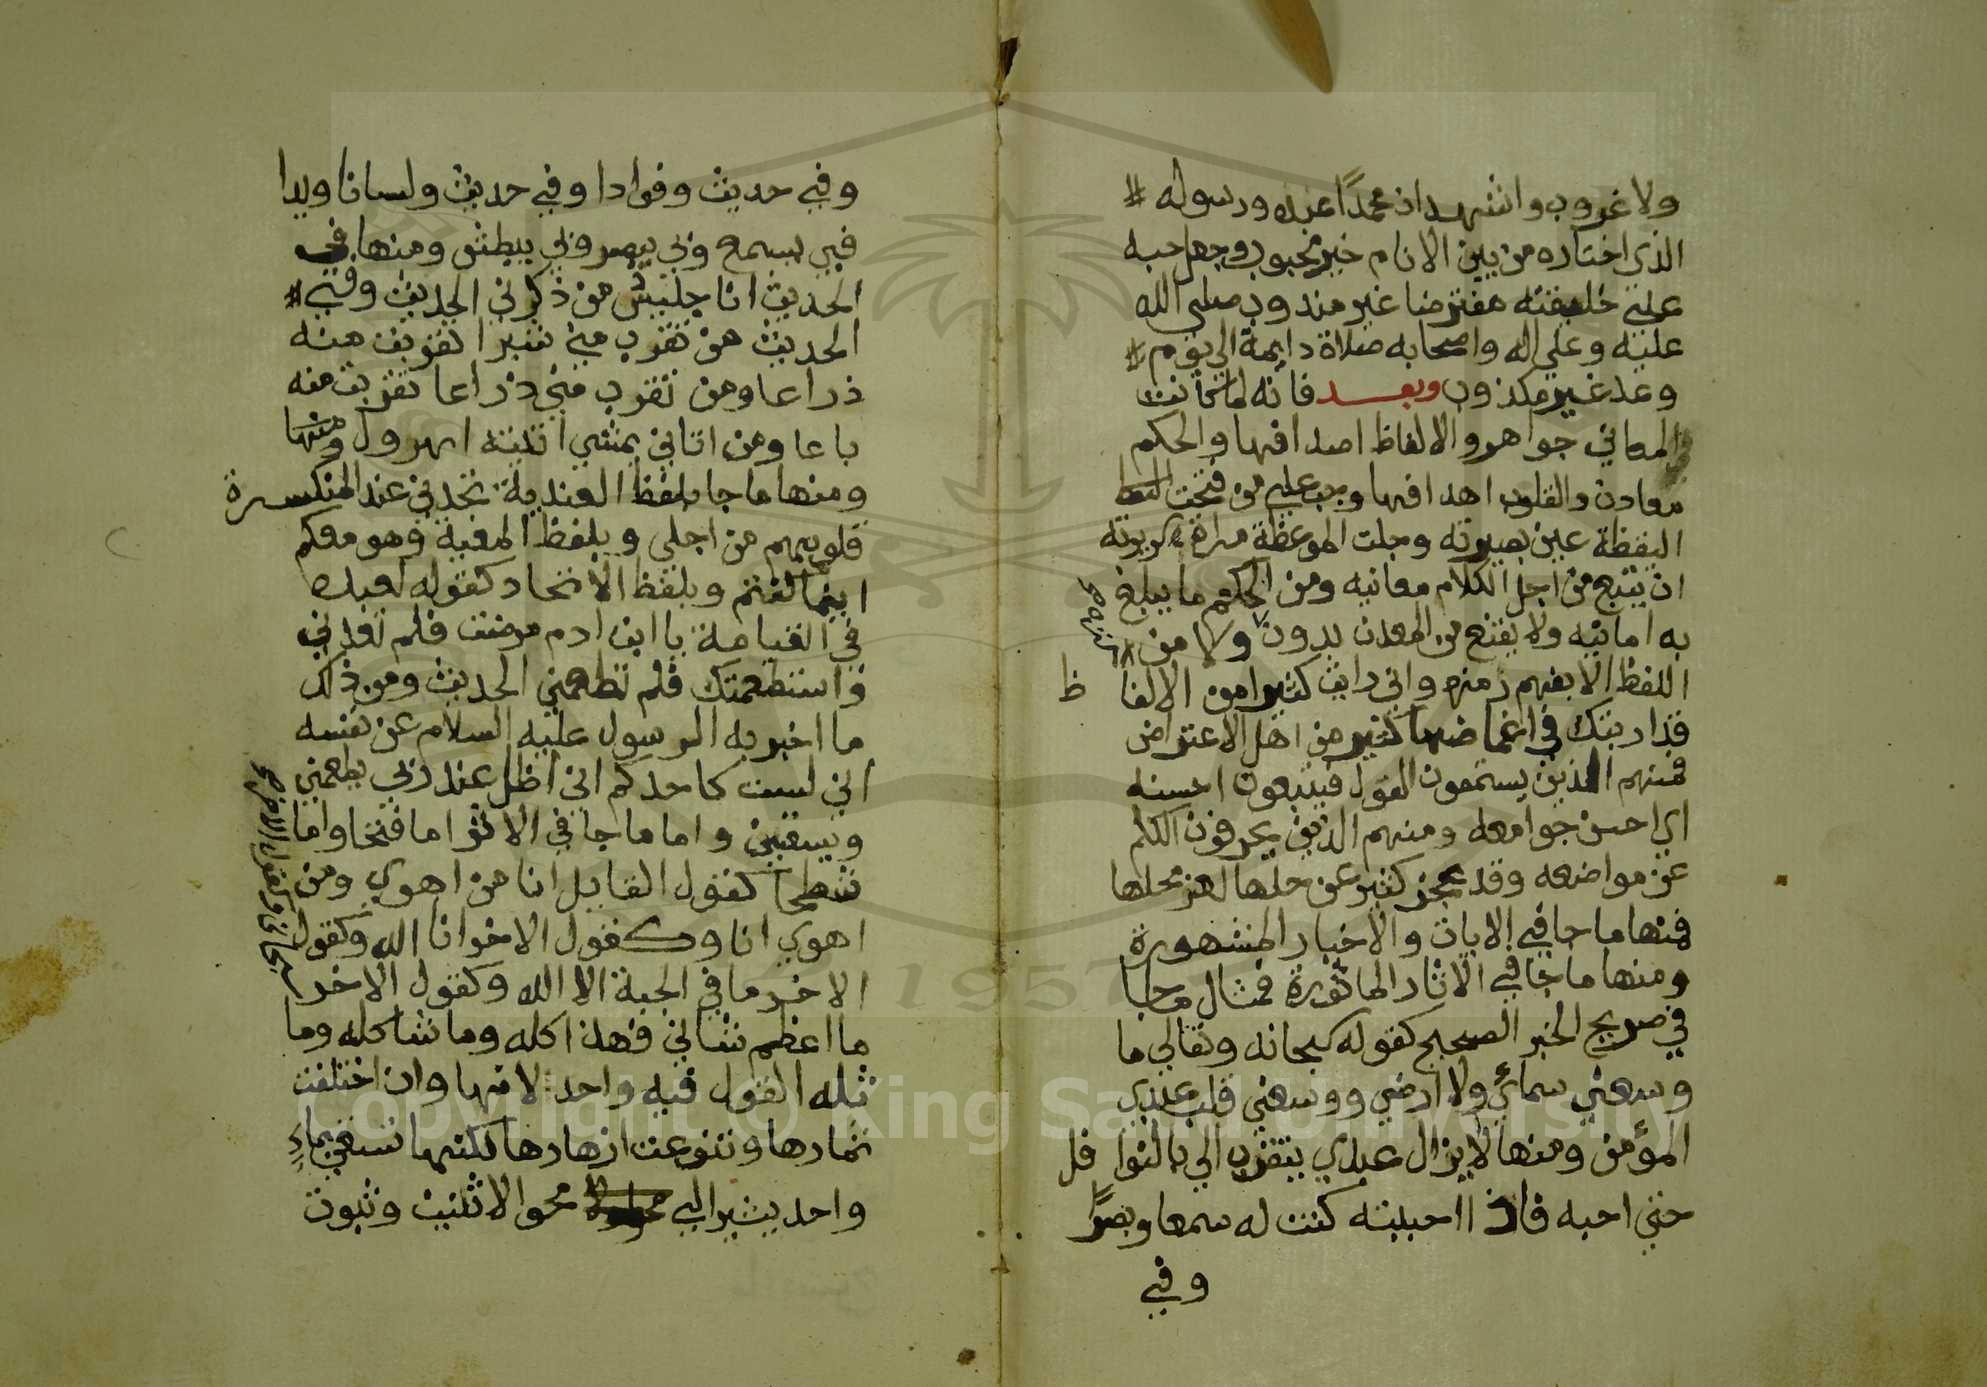 ولا غروب واشهد ان محمدًا عبده ورسوله
الذي اختاره من بين الانام خير محبوب وجعل حبه
علي خليقته مفترضا غير مندوب صلي الله
عليه وعلي اله واصحابه صلاة دايمة الي يوم
وعد غير مكذوب وبعد فانه لما كانت
المعاني جواهر والالفاظ اصدافها والحكم
معادن والقلوب اهدافها وجب علي من فتحت
اليقظة عين بصيرته وجلت الموعظة مراة
ان ينتج من اجل الكلام معانيه ومن الحكم ما يبلغ
به امانيه ولا يقنع من المعدن بدون ولا من
اللفظ الا بفهم رمزه واني رايت كثيرا من الالفا ظ
قد ارتبك في اغماضها كثير من اهل الاعتراض
فمنهم الذين يستمعون القول فيتبعون احسنه
اي احسن جوامعه ومنهم الذين يحرفون الكلم
عن مواضعه وقد عجز كثير عن حلها لعز محلها
فمنها ما جا في الايات والاخبار المشهورة
ومنها ما جا في الاثار الماثورة فمثال ما جا
في صريح الخبر الصحيح كقوله سبحانه وتعالي ما
وسعني سمائي ولا ارضي ووسعني قلب عبدي
المؤمن ومنها لا يزال عبدي يتقرب الي بالنوا فل
حتي احبه فاذا احببته كنت له سمعا وبصرًا
وفي
وفي حديث وفوادا وفي حديث ولسانا ويدا
فبي يسمع وبي يبصر وبي يبطش ومنها في
الحديث انا جليس من ذكرني الحديث وفي
الحديث من تقرب مني شبرا تقربت منه
ذراعا ومن تقرب مني ذراعا تقربت منه
باعا ومن اتاني يمشي اتيته اهرول ومنها
ومنها ما جا بلفظ العندية تجدني عند المنكسرة
قلوبهم من اجلي وبلفظ المعية وهو معكم
اينما كنتم وبلفظ الاتحاد كقوله لعبده
في القيامة يا ابن ادم مرضت فلم تعدني
واستطعمتك فلم تطعمني الحديث ومن ذلك
ما اخبر به الرسول عليه السلام عن نفسه
اني لست كاحدكم اني اظل عند ربي يطعمني
ويسقيني واما ما جا في الاثر اما فتحا واما
شطحا كقول القايل انا من اهوي ومن
اهوي انا وكقول الاخر انا الله وكقول
الاخر ما في الجبة الا الله وكقول الاخر
سبحاني وكقول الاخر صح
ما اعظم شاني فهذا كله وما شاكله وما
ثله القول فيه واحد لانها وان اختلفت
ثمارها وتنوعت ازهارها لكنها تسقي بماءٍ
واحد يشير الي محو الاثنين وثبوت